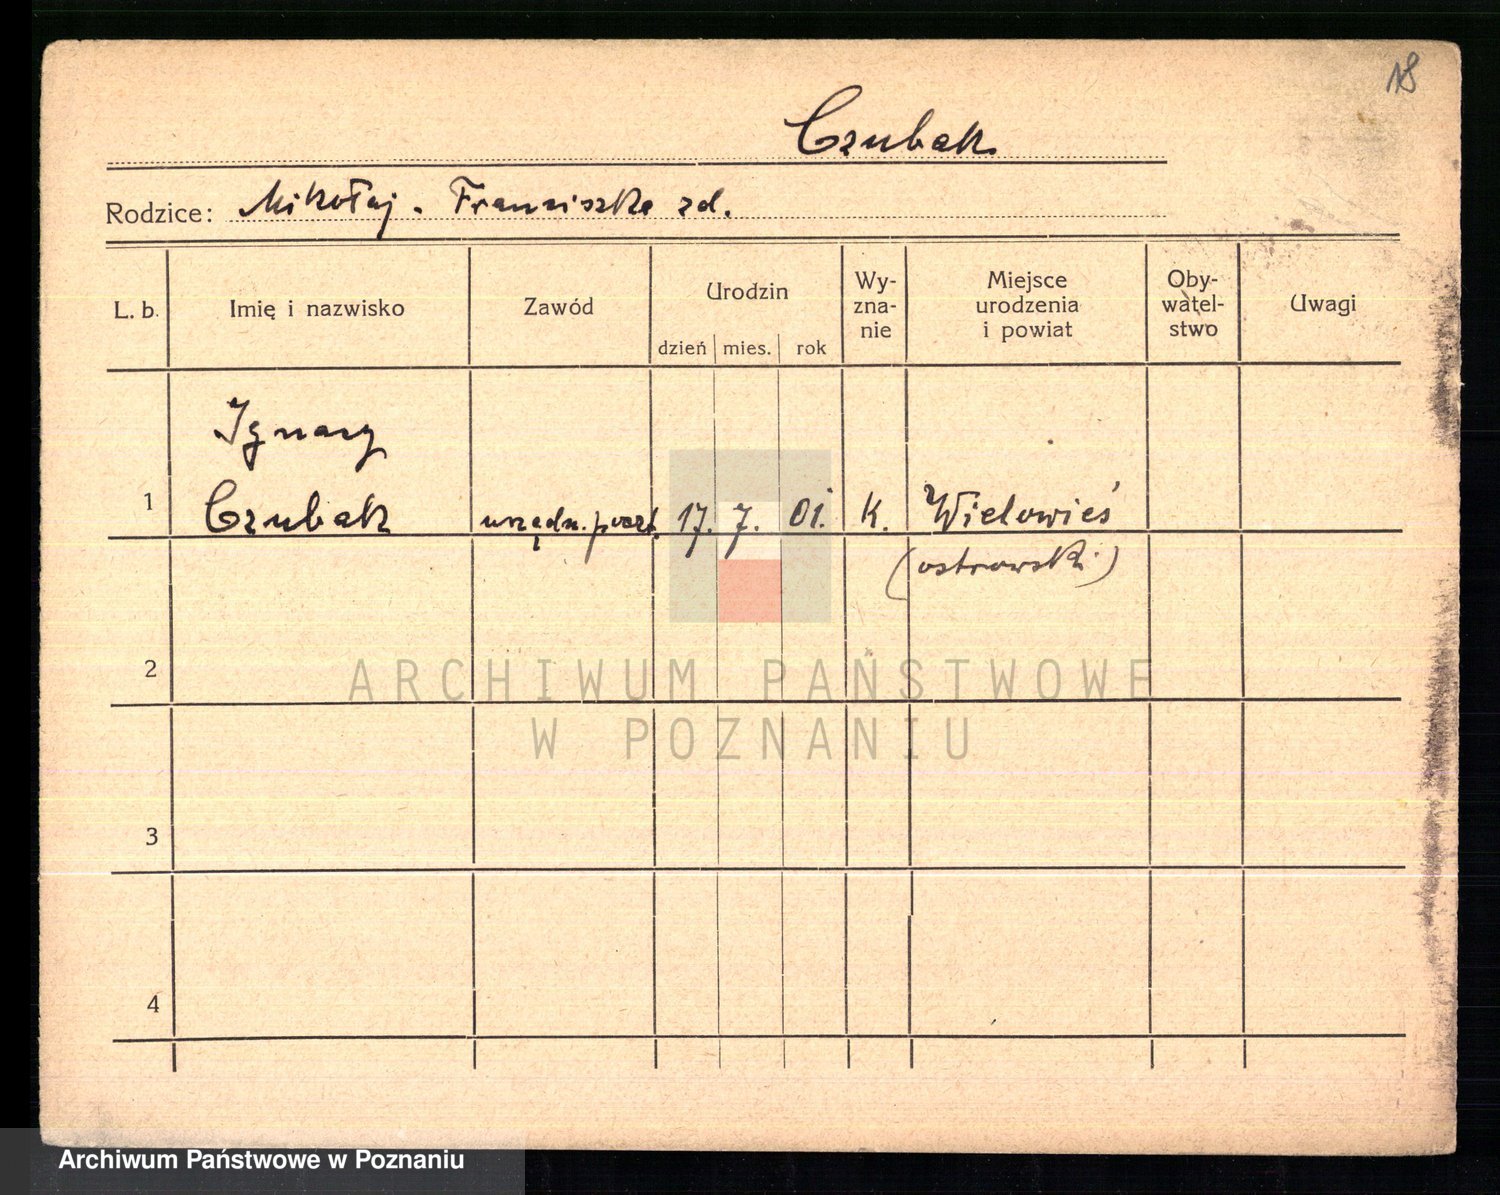 18
Czubak
Rodzice: Mikołaj. Franciszka zd.
L. b. Imię i nazwisko Zawód Urodzin Wy-zna-nie Miejsce urodzenia i powiat Oby-watel-stwo Uwagi
dzień mies. rok
Ignacy
1 Czubak urzędn. poczt. 17. 7. 01. k. Wielowieś
(ostrowski)
2
ARCHIWUM PAŃSTWOWE
W POZNANIU
3
4
Archiwum Państwowe w Poznaniu